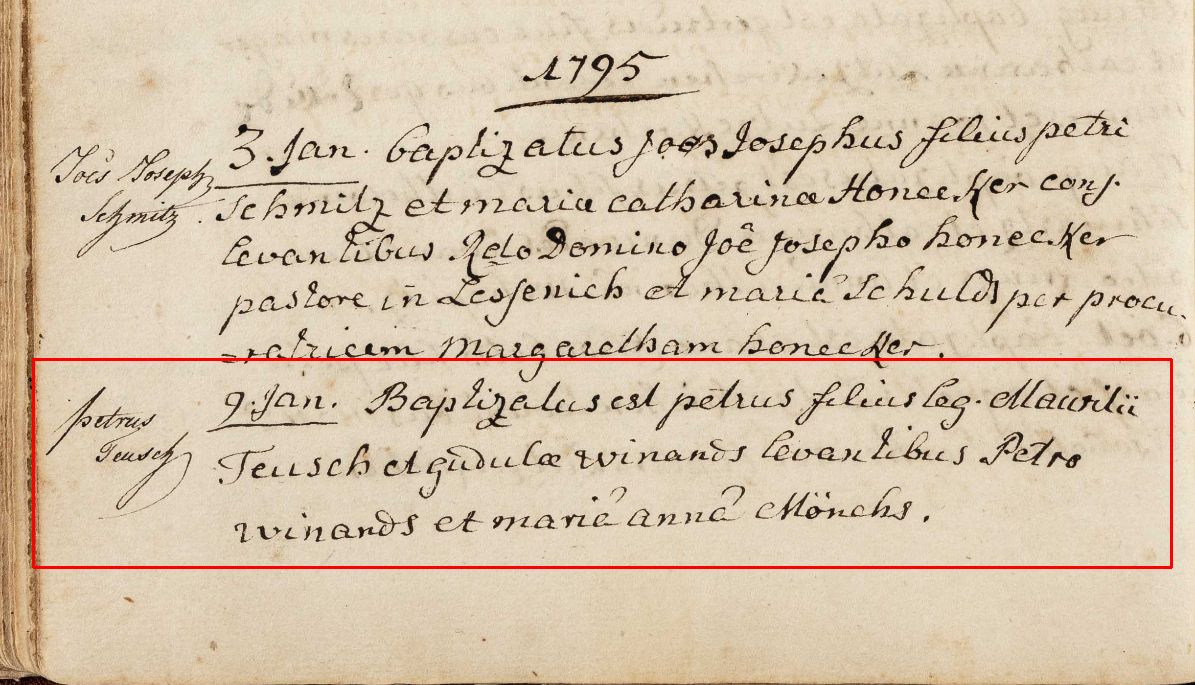 1795
Joês Joseph
Schmitz.
3. Jan. baptizatus Joês Josephus filius petri
Schmitz et mariæ catharinæ Honecker conj.
levantibus Rdo Domino Joê Josepho honecker
pastore in Lessenich et mariâ Schuld per procu-
=ratricem Margaretham honecker.
petrus
Teusch
9. Jan. Baptizatus est petrus filius leg. Mauritii
Teusch et gudulæ winands levantibus Petro
winands et mariâ annâ Mönchs.